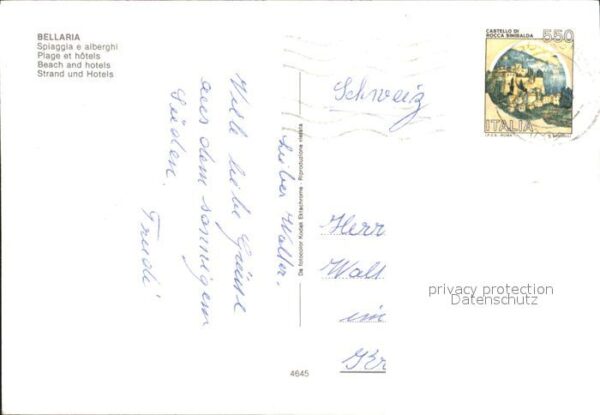 BELLARIA
Spiaggia e alberghi
Plage et hôtels
Beach and hotels
Strand und Hotels
Lieber Walter.
Viele liebe Grüsse
aus dem sonnigem
Süden.
Trudi
De fotocolor Kodak Ektachrome - Riproduzione vietata
4645
CASTELLO DI
ROCCA SINIBALDA
550
ITALIA
Schweiz
Herr
Walt
im
privacy protection
Datenschutz